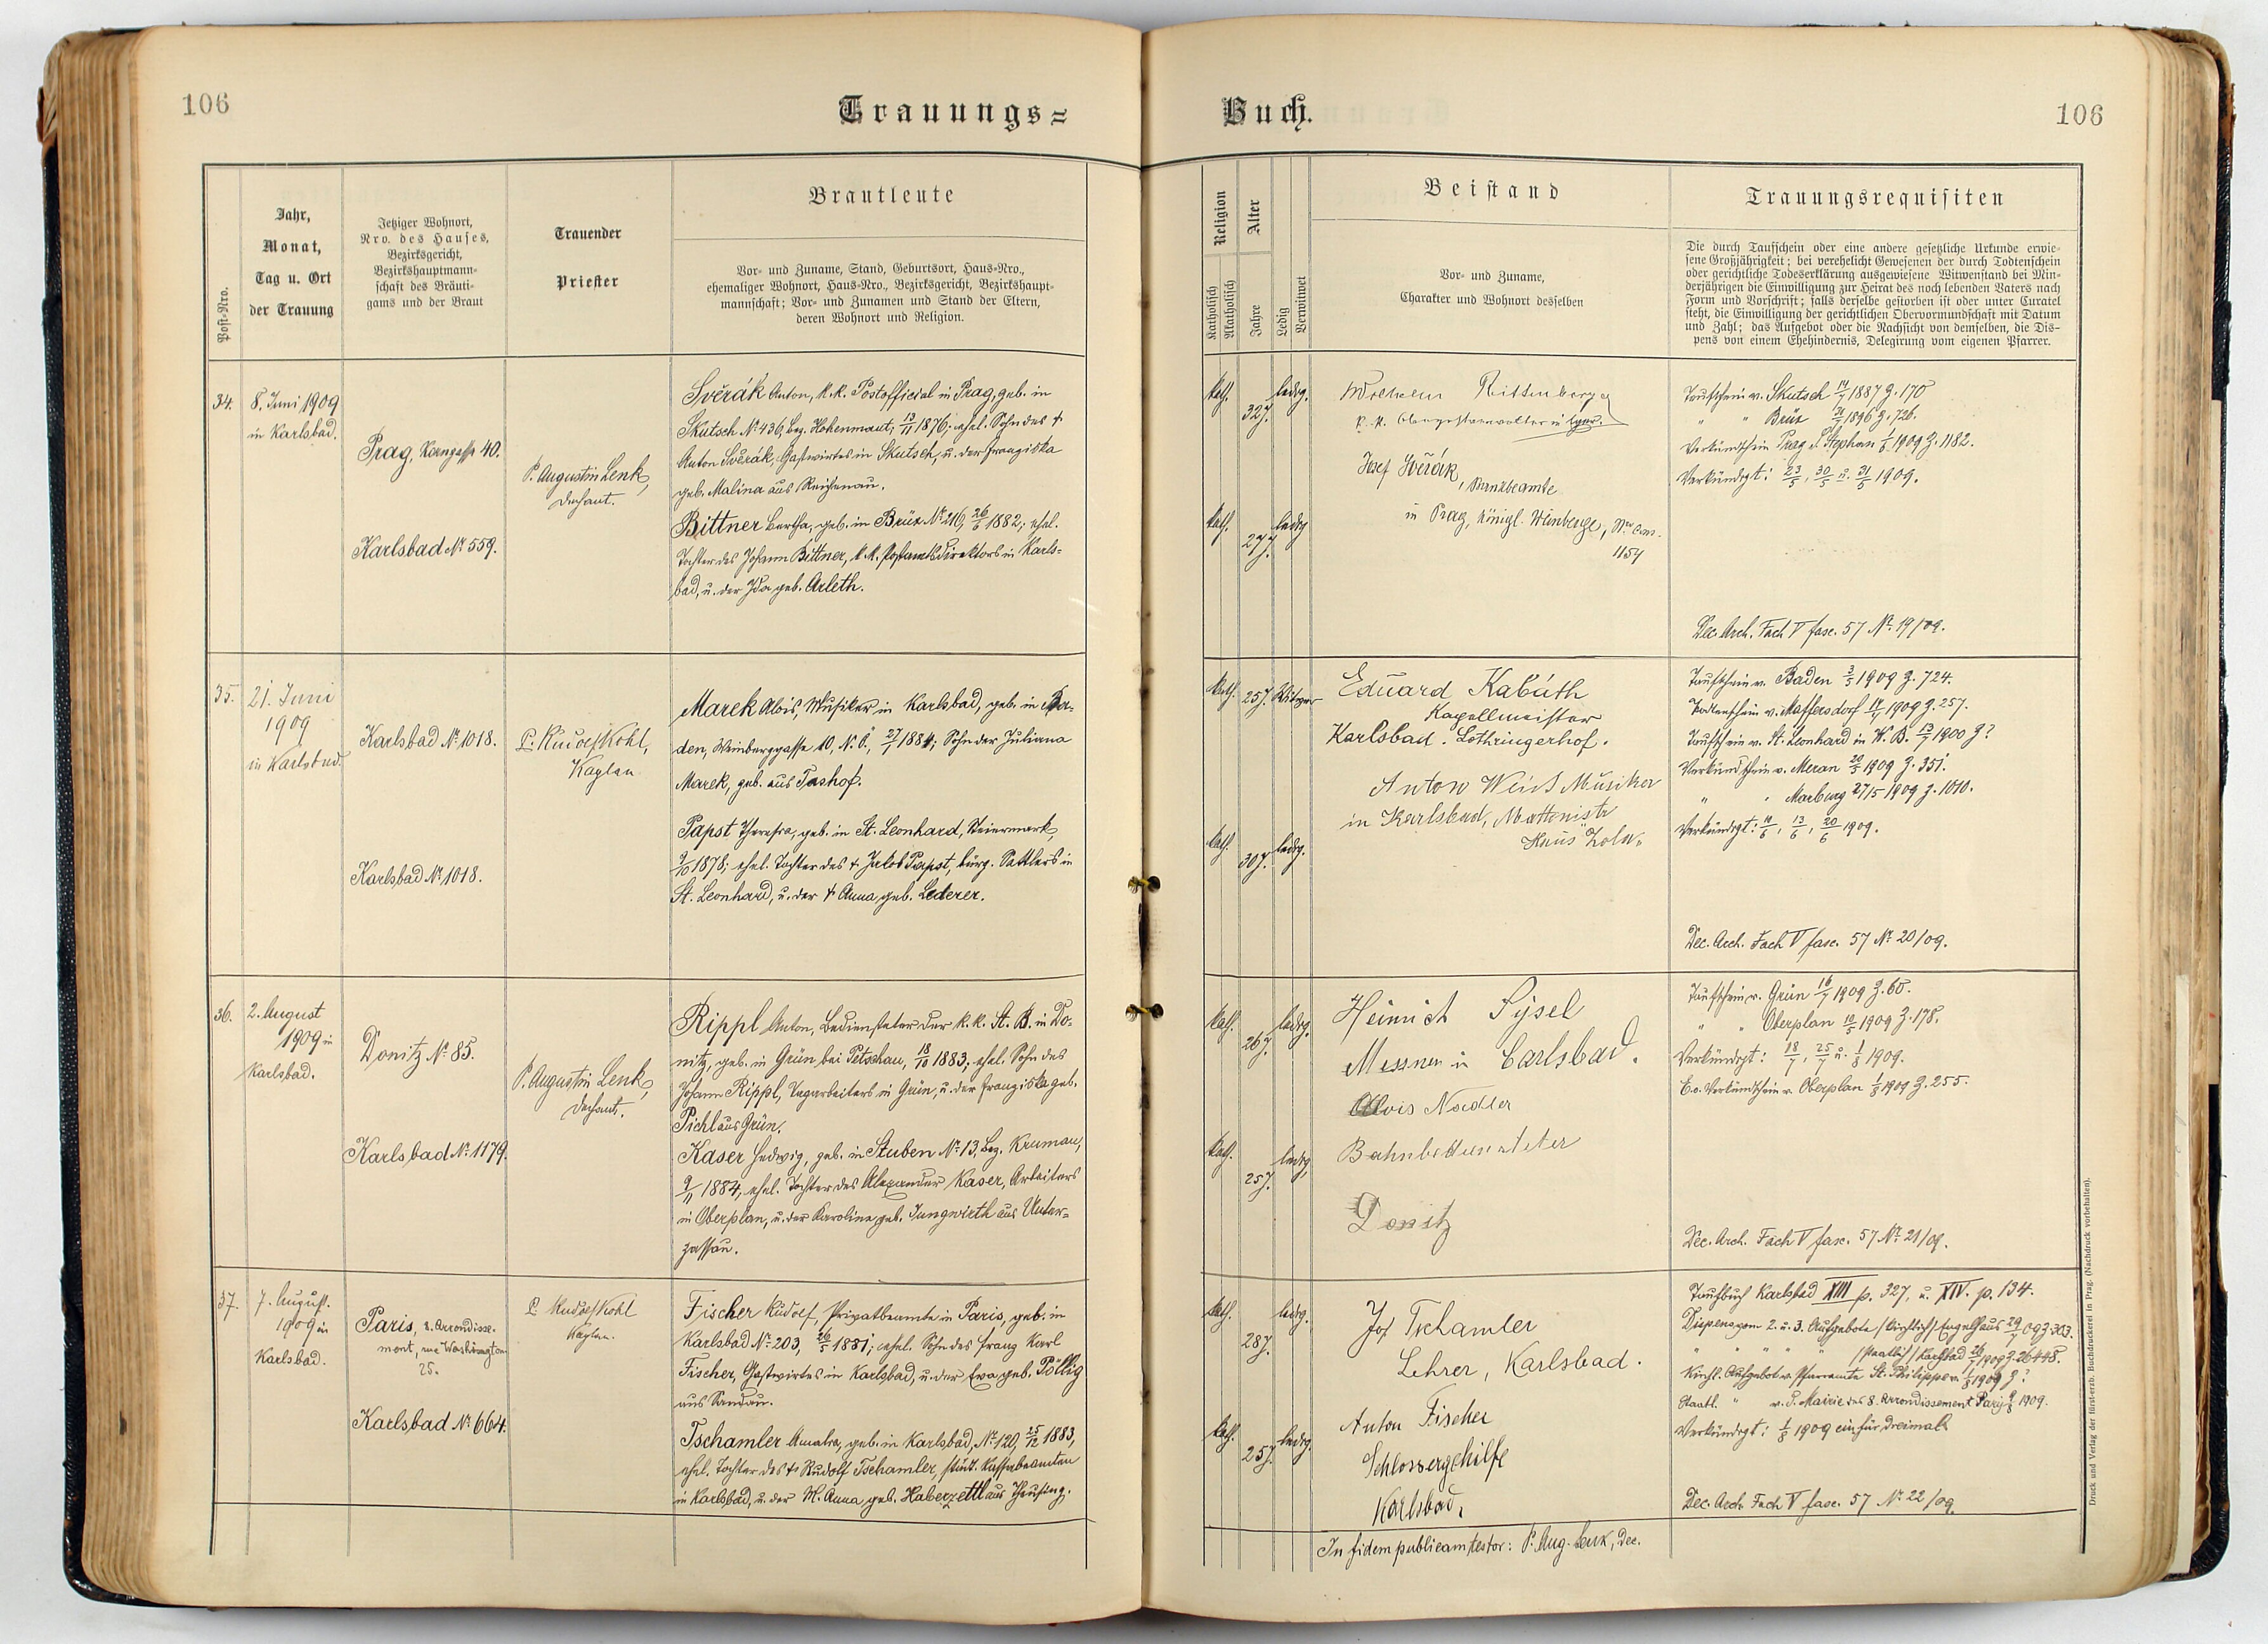 106
Trauungs=
Post-Nro.
Jahr,
Monat,
Tag u. Ort
der Trauung
Jetziger Wohnort,
Nro. des Hauses,
Bezirksgericht,
Bezirkshauptmann-
schaft des Bräuti-
gams und der Braut
Trauender
Priester
Brautleute
Vor- und Zuname, Stand, Geburtsort, Haus-Nro.,
ehemaliger Wohnort, Haus-Nro., Bezirksgericht, Bezirkshaupt-
mannschaft; Vor- und Zunamen und Stand der Eltern,
deren Wohnort und Religion.
34.
8. Juni 1909
in Karlsbad.
Prag, Korngasse 40.
Karlsbad No 559.
P. Augustin Lenk,
Dechant.
Svěrák Anton, k.k. Postofficial in Prag, geb. in
Skutsch No 436, Bez. Hohenmaut, 13/11 1876; ehel. Sohn des †
Anton Svěrák, Gastwirtes in Skutsch, u. der Franziska
geb. Malina aus Reichenau.
Bittner Bertha, geb. in Brüx No 216, 26/5 1882; ehel.
Tochter des Johann Bittner, k.k. Postamtsdirektors in Karls-
bad, u. der Ida geb. Arleth.
35.
21. Juni
1909
in Karlsbad.
Karlsbad No 1018.
Karlsbad No 1018.
P. Rudolf Kohl,
Kaplan
Marek Alois, Musiker in Karlsbad, geb. in Ba-
den, Weinberggasse 10, N.Ö., 27/7 1884; Sohn der Juliana
Marek, geb. aus Pashof.
Papst Theresia, geb. in St. Leonhard, Steiermark,
1878; ehel. Tochter des † Jakob Papst, bürg. Sattlers in
St. Leonhard, u. der † Anna, geb. Lederer.
36.
2. August
1909 in
Karlsbad.
Donitz No 85.
Karlsbad No 1179.
P. Augustin Lenk,
Dechant.
Rippl Anton, Bediensteter der k.k. St. B. in Do-
nitz, geb. in Grün bei Petschau, 18/10 1883; ehel. Sohn des
Johann Rippl, Tagarbeiters in Grün, u. der Franziska geb.
Pichl aus Grün.
Kaser Hedwig, geb. in Stuben No 13, Bez. Krumau,
9/11 1884, ehel. Tochter des Alexander Kaser, Arbeiters
in Oberplan, u. der Karolina geb. Jungwirth aus Unter-
zassau.
37.
7. August.
1909 in
Karlsbad.
Paris, 8. Arrondisse-
ment, rue Washington
25.
Karlsbad No 664.
P. Rudolf Kohl
Kaplan.
Fischer Rudolf, Privatbeamte in Paris, geb. in
Karlsbad No 203, 26/5 1881; ehel. Sohn des Franz Karl
Fischer, Gastwirtes in Karlsbad, u. der Eva geb. Pöllig
aus Sandau.
Tschamler Amalia, geb. in Karlsbad, No 120, 25/12 1883,
ehel. Tochter des † Rudolf Tschamler, städt. Kassabeamten
in Karlsbad, u. der M. Anna geb. Haberzettl aus Theusing.
Buch.
106
Religion
Katholisch
Akatholisch
Alter
Jahre
Ledig
Verwitwet
Beistand
Vor- und Zuname,
Charakter und Wohnort desselben
Trauungsrequisiten
Die durch Taufschein oder eine andere gesetzliche Urkunde erwie-
sene Großjährigkeit; bei verehelicht Gewesenen der durch Todtenschein
oder gerichtliche Todeserklärung ausgewiesene Witwenstand bei Min-
derjährigen die Einwilligung zur Heirat des noch lebenden Vaters nach
Form und Vorschrift; falls derselbe gestorben ist oder unter Curatel
steht, die Einwilligung der gerichtlichen Obervormundschaft mit Datum
und Zahl; das Aufgebot oder die Nachsicht von demselben, die Dis-
pens von einem Ehehindernis, Delegirung vom eigenen Pfarrer.
kath.
32 J.
ledig.
kath.
27 J.
ledig
Rittenberger
k. k. in Eger.
Josef Svěřák, Bankbeamte
in Prag, königl. Weinberge, Nro Con.
1154
Taufschein v. Skutsch 14/7 1887 Z. 170
" " Brüx 1896 Z. 726.
Verkündschein Prag St. Stephan 1909 Z. 1182.
Verkündigt: 23/5, 30/5 u. 31/5 1909.
Dec. Arch. Fach V fasc. 57 No 19/09.
kath.
25 J.
Witwer
kath.
30 J.
ledig.
Eduard Kabáth
Kapellmeister
Karlsbad. Lothringerhof.
Anton Weis Musiker
in Karlsbad, Mattonistr
Haus "Zola"
Taufschein v. Baden 3/5 1909 Z. 724.
Todtenschein v. Maffersdorf 1909 Z. 257.
Taufschein v. St. Leonhard in W. B. 1900 Z?
Verkündschein v. Meran 20/5 1909 Z. 351.
" " Marburg 27/5 1909 Z. 1010.
Verkündigt: 10/6, 13/6, 20/6 1909.
Dec. Arch. Fach V fasc. 57 No 20/09.
kath.
26 J.
ledig.
kath.
25 J.
ledig,
Heinrich Sysel
Messner in Carlsbad.
Alois Nadler
Bahnbediensteter
Donitz
Taufschein v. Grün 16/7 1909 Z. 60.
" " Oberplan 10/5 1909 Z. 178.
Verkündigt: 18/7, 25/7 u. 1/8 1909.
E.o. Verkündschein v. Oberplan 1/8 1909 Z. 255.
Dec. Arch. Fach V fasc. 57 No 21/09.
kath.
28 J.
ledig.
kath.
25 J.
ledig.
Jos Tschamler
Lehrer, Karlsbad.
Anton Fischer
Schlossergehilfe
Karlsbad.
Taufbuch Karlsbad XIII p. 327. u. XIV. p. 134.
Dispens vom 2. u. 3. Aufgebote /kirchlich/ Engelhaus 29/7 09 Z. 303.
" " " " " /staatlich/ Karlsbad 26/7 1909 Z. 26448.
Kirchl. Aufgebot v. Pfarramte St. Philippe v. 1/8 1909 Z?
Staatl. " v. d. Mairie des 8. Arrondissement Paris 1909.
Verkündigt: 1/8 1909 ein für dreimal.
Dec. Arch. Fach V fasc. 57 No 22/09.
In fidem publicam testor: P. Aug. Lenk, Dec.
Druck und Verlag der fürst-erzb. Buchdruckerei in Prag. (Nachdruck vorbehalten).